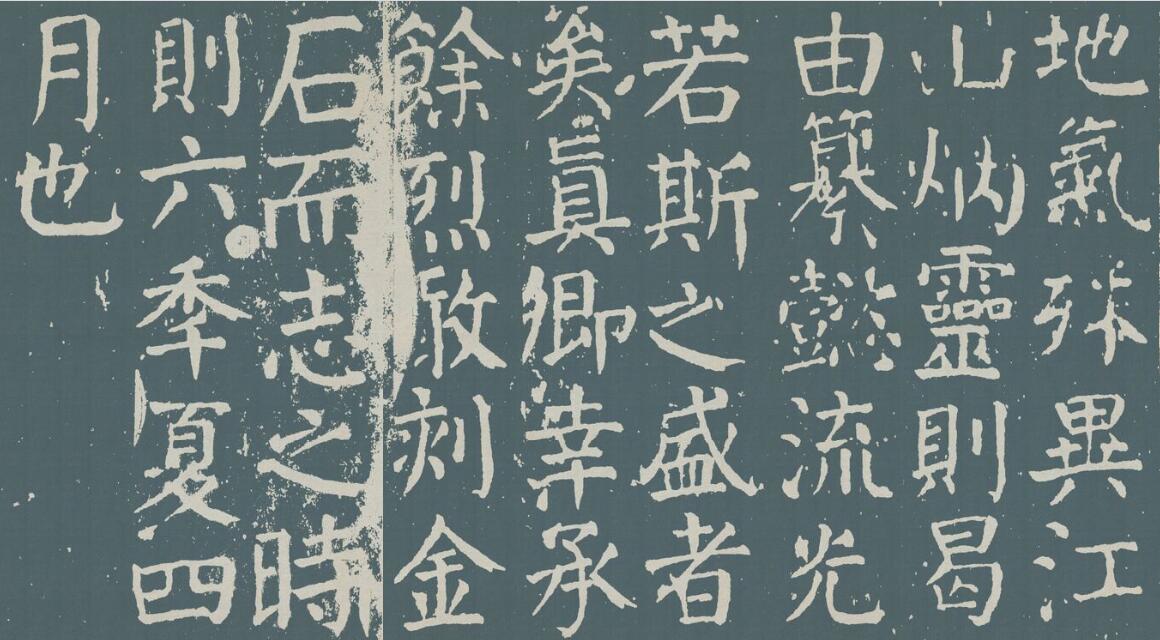 地氣殊異江
山炳靈則曷
由纂懿流光
若斯之盛者
矣眞卿幸承
餘烈敢刻金
石而志之時
則六年夏四
月也